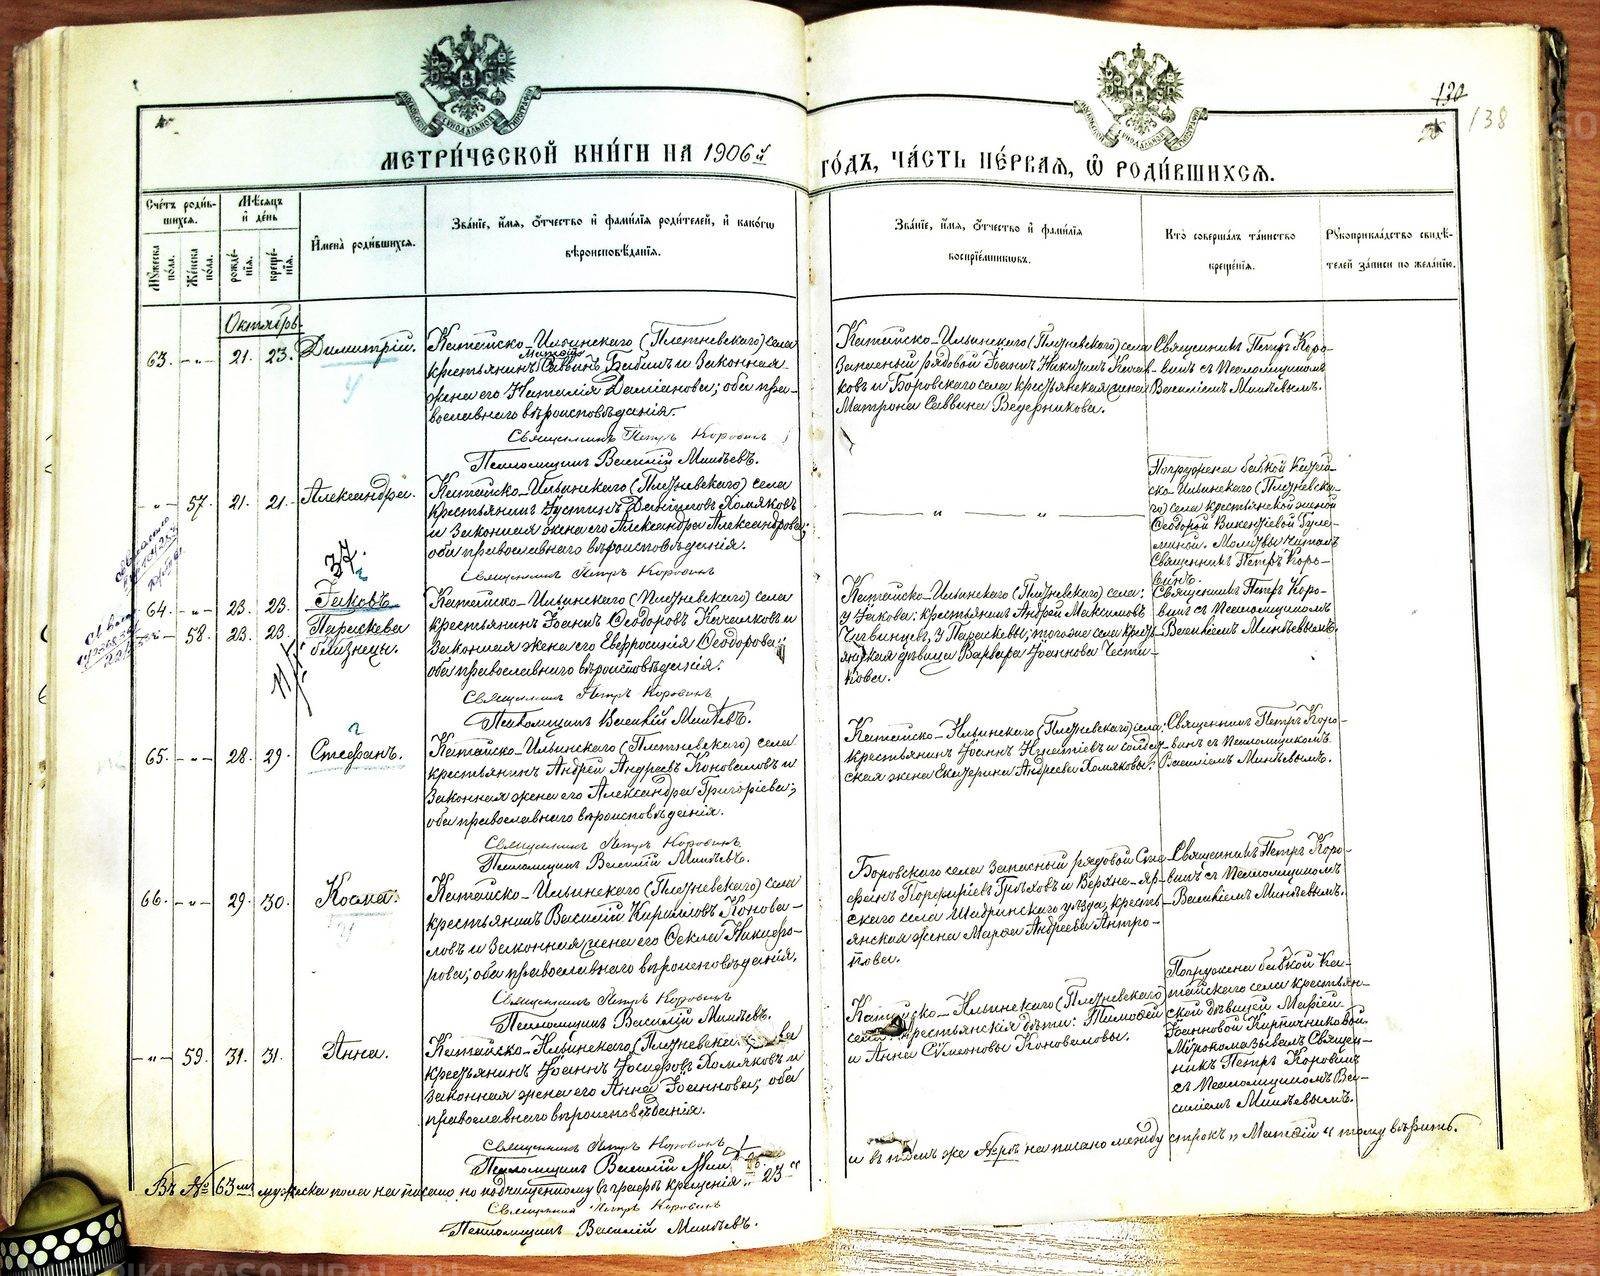 МЕТРИ́ЧЕСКОЙ КНИ́ГИ НА 1906й ГО́ДЪ, ЧА́СТЬ ПЕ́РВАЯ, Ѡ РОДИ́ВШИХСѦ.
130
138
Сче́тъ роди́в-
шихся.
Мѣ́сяцъ
и де́нь
Му́жеска
по́ла.
Же́нска
по́ла.
рожде́-
нія.
креще́-
нія.
Имена̀ роди́вшихся.
Зва́ніе, и́мя, о́тчество и фами́лія роди́телей, и како́гѡ
вѣроисповѣ́данія.
Зва́ніе, и́мя, о́тчество и фами́лія
воспріе́мниковъ.
Кто̀ соверша́лъ та́инство
креще́нія.
Рукоприкла́дство свидѣ́-
телей за́писи по жела́нію.
Октябрь.
63. -„- 21. 23. Димитрій.
Катайско-Ильинскаго (Плетневскаго) села
крестьянинъ Саввинъ Бабинъ и законная
жена его Наталія Даміанова; оба пра-
вославнаго вѣроисповѣданія.
Священникъ Петръ Коровинъ
Псаломщикъ Василій Минѣевъ.
Катайско-Ильинскаго (Плетневскаго) села
запасный рядовой Іоаннъ Никитинъ
и Боровскаго села крестьянская жена
Матрона Саввина Ведерникова.
Священникъ Петръ Коро-
винъ съ псаломщикомъ
Василіемъ Минѣевымъ.
-„- 57. 21. 21. Александра.
Катайско-Ильинскаго (Плетневскаго) села
крестьянинъ Іустинъ Хомяковъ
и законная жена его Александра Александрова;
оба православнаго вѣроисповѣданія.
Священникъ Петръ Коровинъ
„ „
Погружена бабкой Катай-
ско-Ильинскаго (Плетневска-
го) села крестьянской женой
Ѳеодорой Викентіевой Гуле-
миной. Молитвы читалъ
Священникъ Петръ Коро-
винъ.
37.
64. -„- 23. 23. Іаковъ
-„- 58. 23. 23. Параскева
близнецы.
Катайско-Ильинскаго (Плетневскаго) села
крестьянинъ Іоаннъ Ѳеодоровъ и
законная жена его Евфросинія Ѳеодорова;
оба православнаго вѣроисповѣданія.
Священникъ Петръ Коровинъ
Псаломщикъ Василій Минѣевъ.
Катайско-Ильинскаго (Плетневскаго) села:
у Іакова: крестьянинъ Андрей Максимовъ
у Параскевы: того же села кресть-
янская дѣвица Варвара Іоаннова Чести-
кова.
Священникъ Петръ Коро-
винъ съ псаломщикомъ
Василіемъ Минѣевымъ.
65. -„- 28. 29. Стефанъ.
Катайско-Ильинскаго (Плетневскаго) села
крестьянинъ Андрей Андреевъ Коноваловъ и
законная жена его Александра Григоріева;
оба православнаго вѣроисповѣданія.
Священникъ Петръ Коровинъ
Псаломщикъ Василій Минѣевъ.
Катайско-Ильинскаго (Плетневскаго) села:
крестьянинъ Іоаннъ Игнатіевъ и солдат-
ская жена Екатерина Андреева Хомяковы.
Священникъ Петръ Коро-
винъ съ псаломщикомъ
Василіемъ Минѣевымъ.
66. -„- 29. 30. Косма.
Катайско-Ильинскаго (Плетневскаго) села
крестьянинъ Василій Кириловъ Конова-
ловъ и законная жена его Ѳекла Никифо-
рова; оба православнаго вѣроисповѣданія.
Священникъ Петръ Коровинъ
Псаломщикъ Василій Минѣевъ.
Боровскаго села запасный рядовой Сте-
фанъ Порфиріевъ Грѣховъ и Верхне-Яр-
скаго села Шадринскаго уѣзда, кресть-
янская жена Марѳа Андреева Антро-
пова.
Священникъ Петръ Коро-
винъ съ псаломщикомъ
Василіемъ Минѣевымъ.
-„- 59. 31. 31. Анна.
Катайско-Ильинскаго (Плетневска
крестьянинъ Іоаннъ Іосифовъ Хомяковъ и
законная жена его Анна Іоаннова; оба
православнаго вѣроисповѣданія.
Священникъ Петръ Коровинъ
Псаломщикъ Василій
Катайско-Ильинскаго (Плетневскаго)
села крестьянскія дѣти: Тимоѳей
и Анна Сѵмеоновы Коноваловы.
Погружена бабкой Ка-
тайскаго села крестьян-
ской дѣвицей Маріей
Іоанновой Кирпичниковой.
Мѵропомазывалъ Священ-
никъ Петръ Коровинъ
съ псаломщикомъ Ва-
силіемъ Минѣевымъ.
Въ № 63мъ мужеска пола написано по подчищенному въ графѣ крещенія „23“
и въ томъ же №рѣ написано между строкъ „Матѳій“ чему вѣрить.
Священникъ Петръ Коровинъ
Псаломщикъ Василій Минѣевъ.